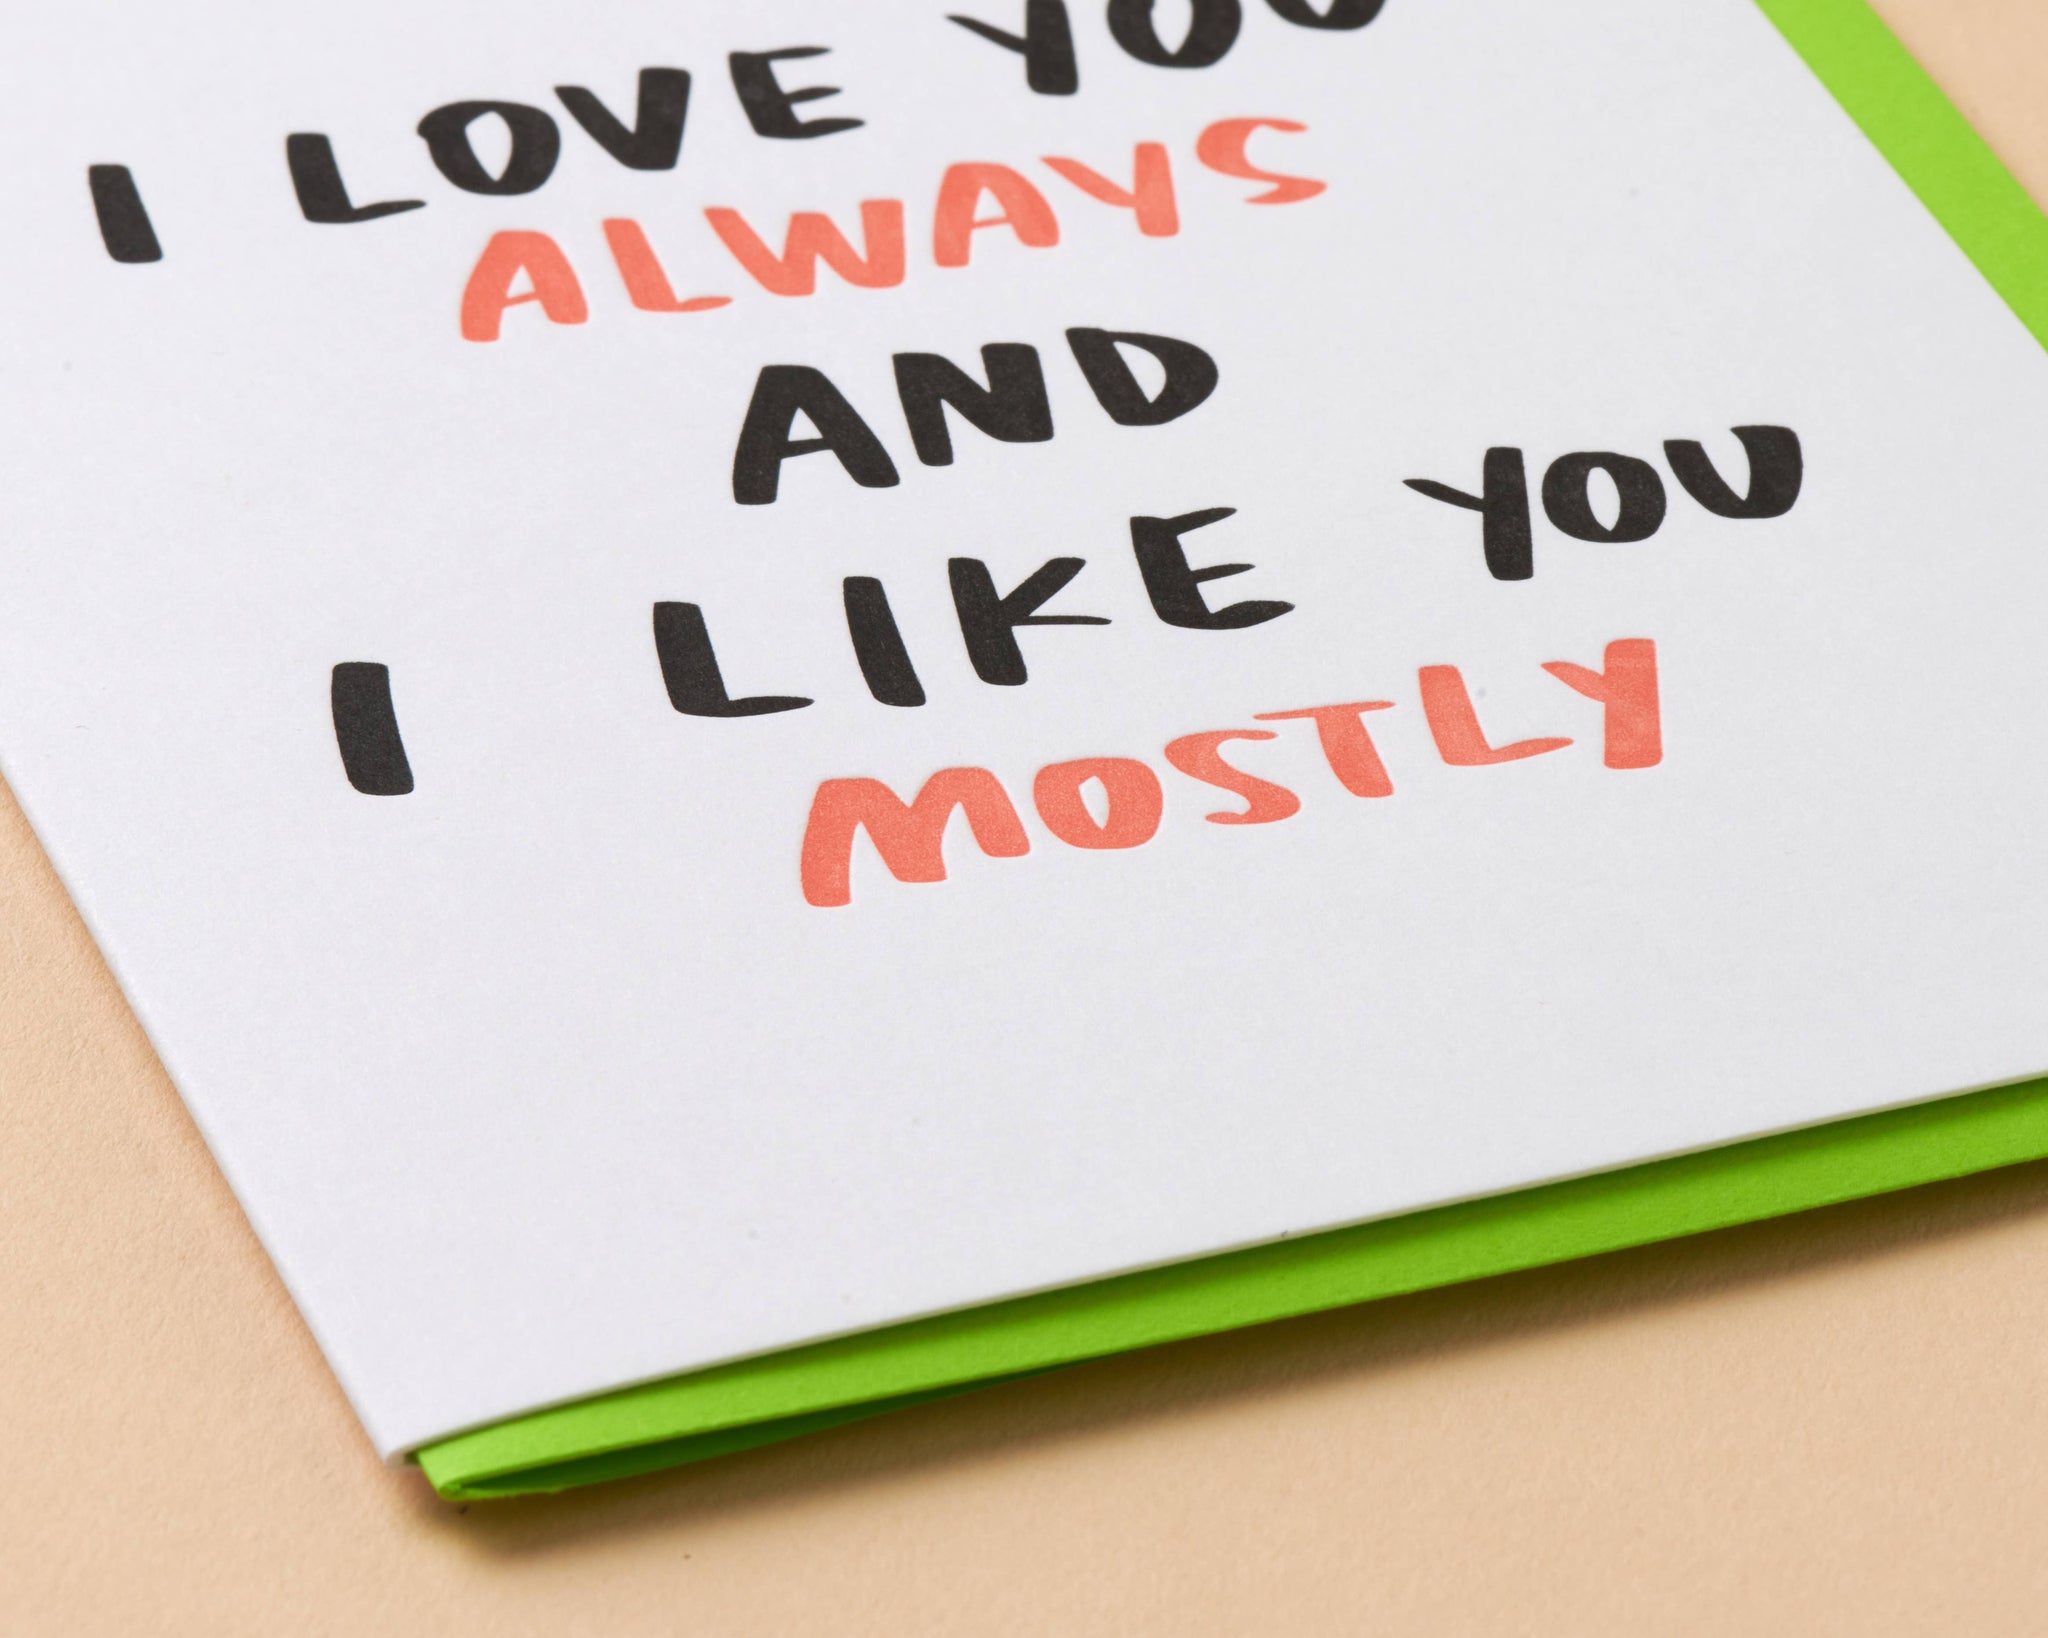 I LOVE YOU
ALWAYS
AND
I LIKE YOU
MOSTLY